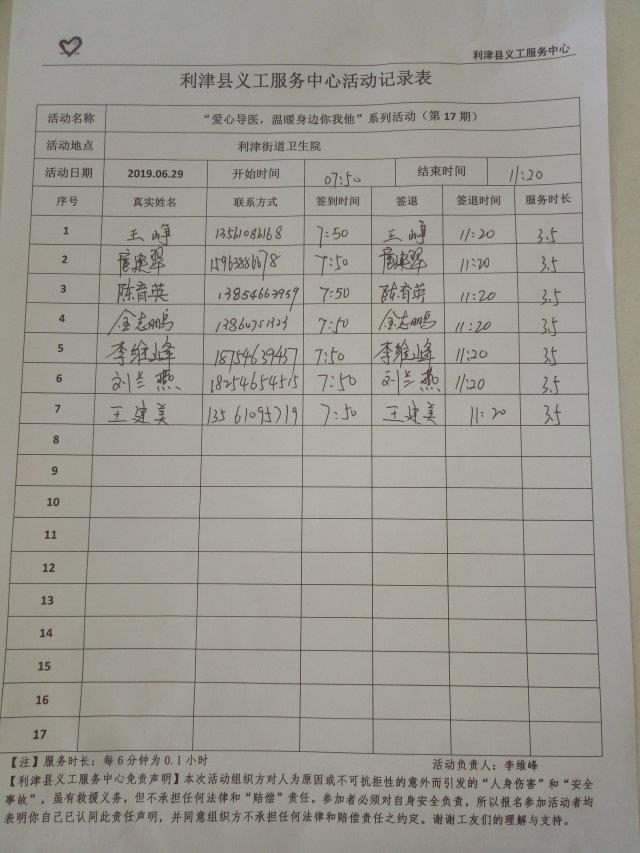 利津县义工服务中心
利津县义工服务中心活动记录表
活动名称 “爱心导医，温暖身边你我他”系列活动（第 17 期）
活动地点 利津街道卫生院
活动日期 2019.06.29 开始时间 07:50 结束时间 11:20
序号 真实姓名 联系方式 签到时间 签退 签退时间 服务时长
1 王峥 13561086168 7:50 王峥 11:20 3.5
2 7:50 11:20 3.5
3 陈育英 13854663959 7:50 陈育英 11:20 3.5
4 金志鹏 7:50 金志鹏 11:20 3.5
5 李维峰 18754639457 7:50 李维峰 11:20 3.5
6 刘兰燕 18254654515 7:50 刘兰燕 11:20 3.5
7 王建美 13561095719 7:50 王建美 11:20 3.5
8
9
10
11
12
13
14
15
16
17
【注】服务时长：每 6 分钟为 0.1 小时 活动负责人：李维峰
【利津县义工服务中心免责声明】本次活动组织方对人为原因或不可抗拒性的意外而引发的“人身伤害”和“安全
事故”，虽有救援义务，但不承担任何法律和“赔偿”责任。参加者必须对自身安全负责，所以报名参加活动者均
表明你自己已认同此责任声明，并同意组织方不承担任何法律和赔偿责任之约定。谢谢工友们的理解与支持。